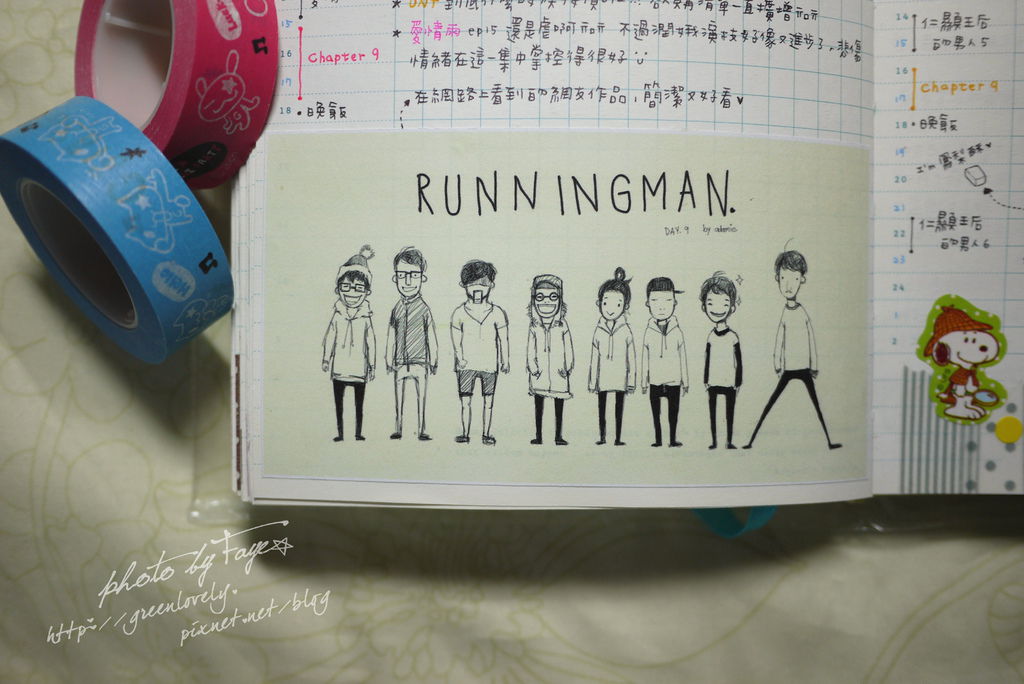 15
16
17
18
Chapter 9
晚飯
愛情雨 ep15 還是虐啊 不過潤娥演技好像又進步了,悲傷
情緒在這一集中掌控得很好
在網路上看到的網友作品,簡潔又好看
RUNNINGMAN.
DAY. 9 by
14
15
16
17
18
19
20
21
22
23
24
1
2
仁顯王后
的男人 5
Chapter 9
晚飯
I'm 鳳梨酥
仁顯王后
的男人 6
photo by Faye
http://greenlovely.
pixnet.net/blog